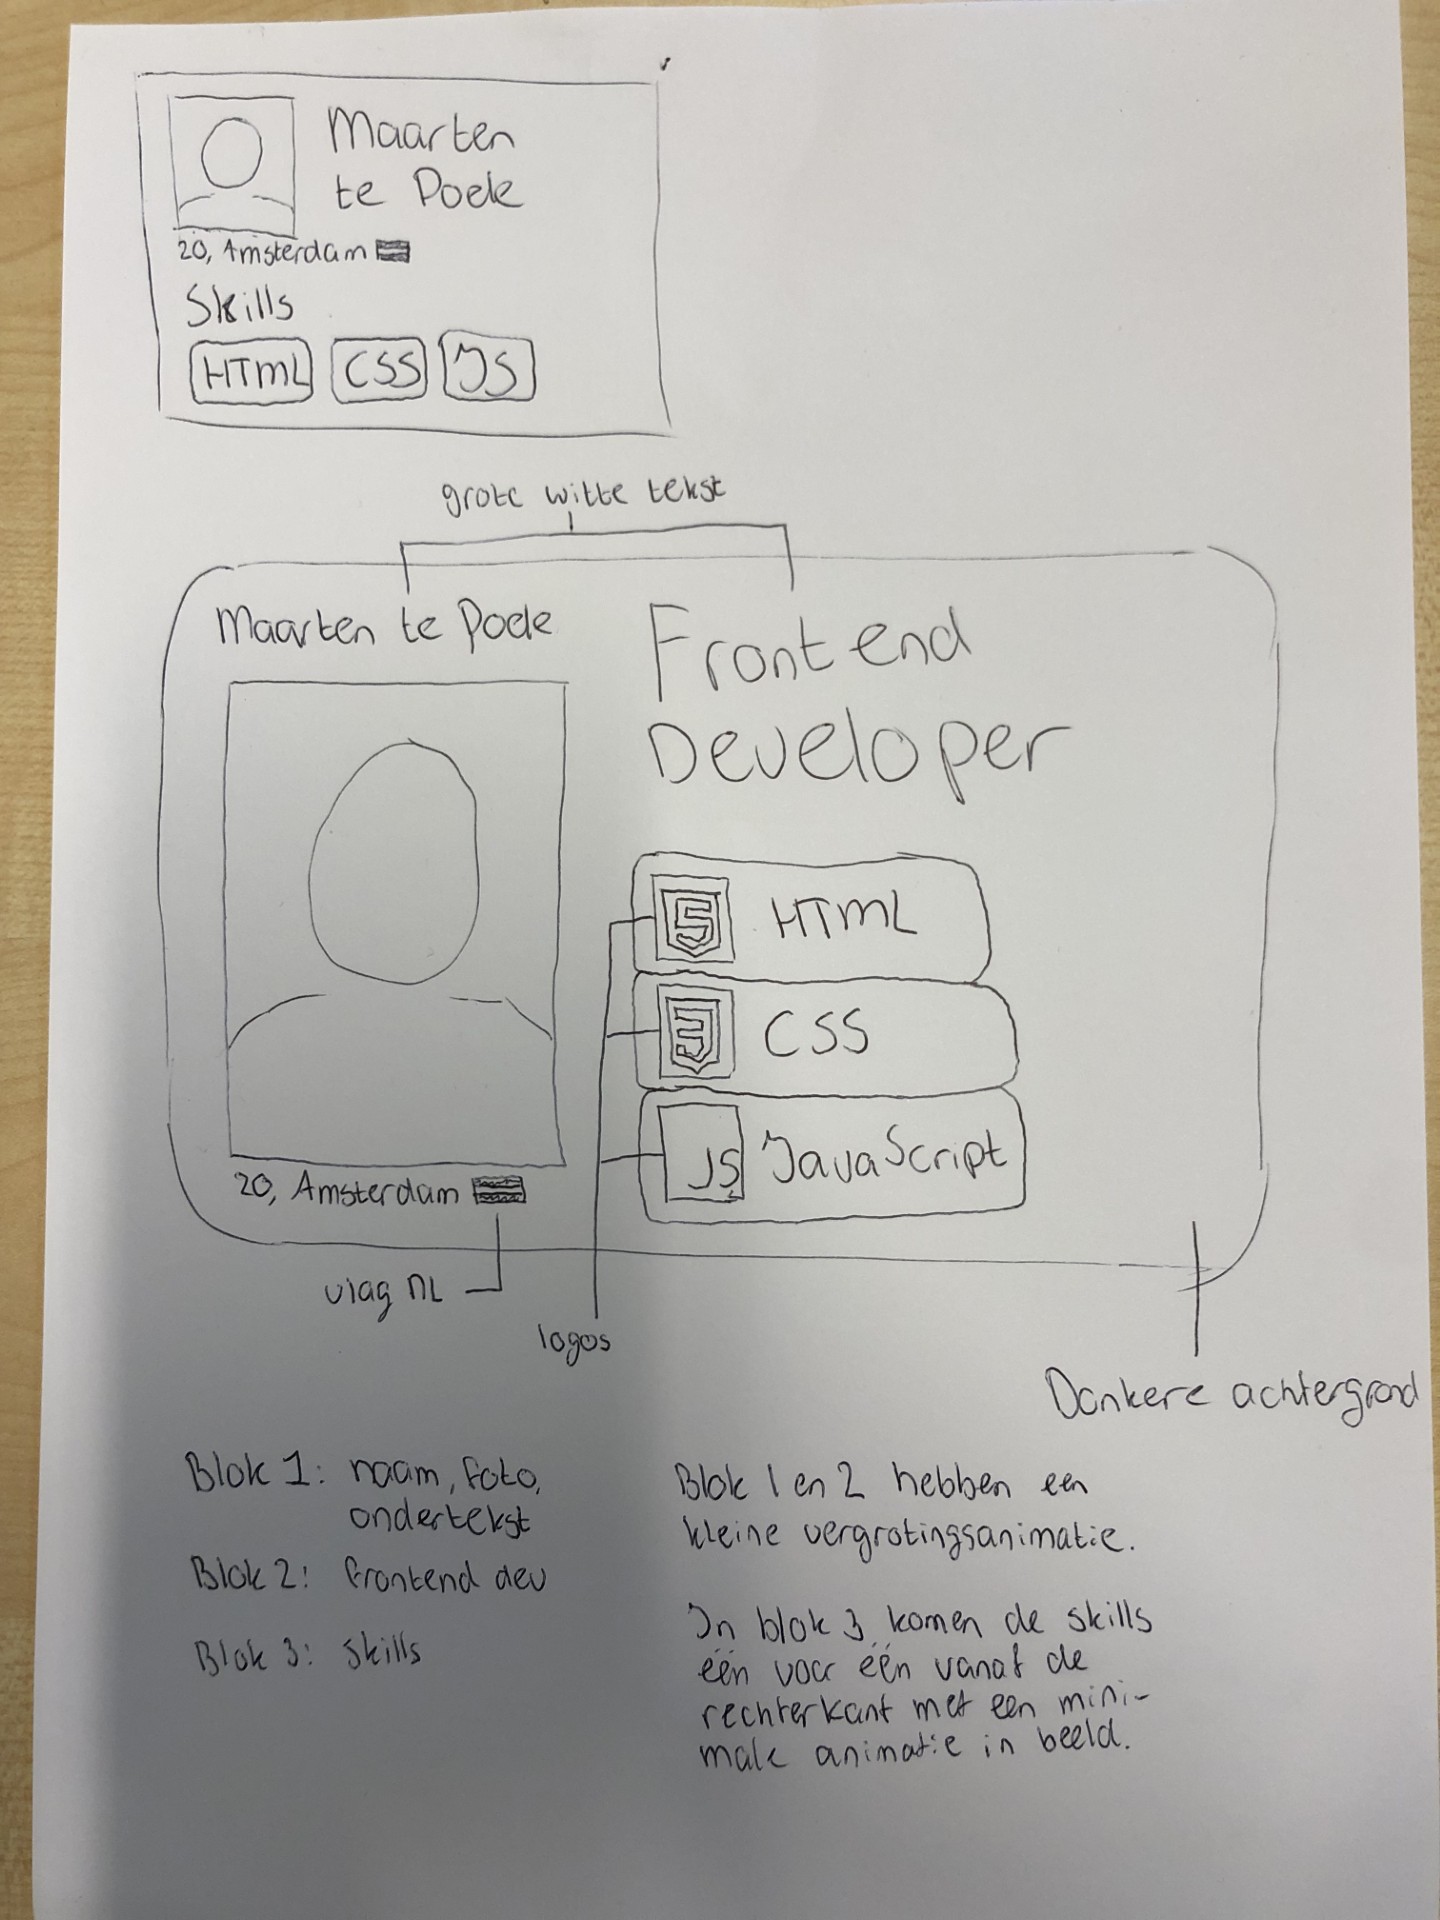 Maarten
te Poele
20, Amsterdam
Skills
HTML CSS JS
grote witte tekst
Maarten te Poele
Frontend
Developer
5 HTML
3 CSS
JS JavaScript
20, Amsterdam
vlag NL
logos
Donkere achtergrond
Blok 1: naam, foto,
ondertekst
Blok 2: frontend dev
Blok 3: skills
Blok 1 en 2 hebben een
kleine vergrotingsanimatie.
In blok 3 komen de skills
één voor één vanaf de
rechterkant met een mini-
male animatie in beeld.